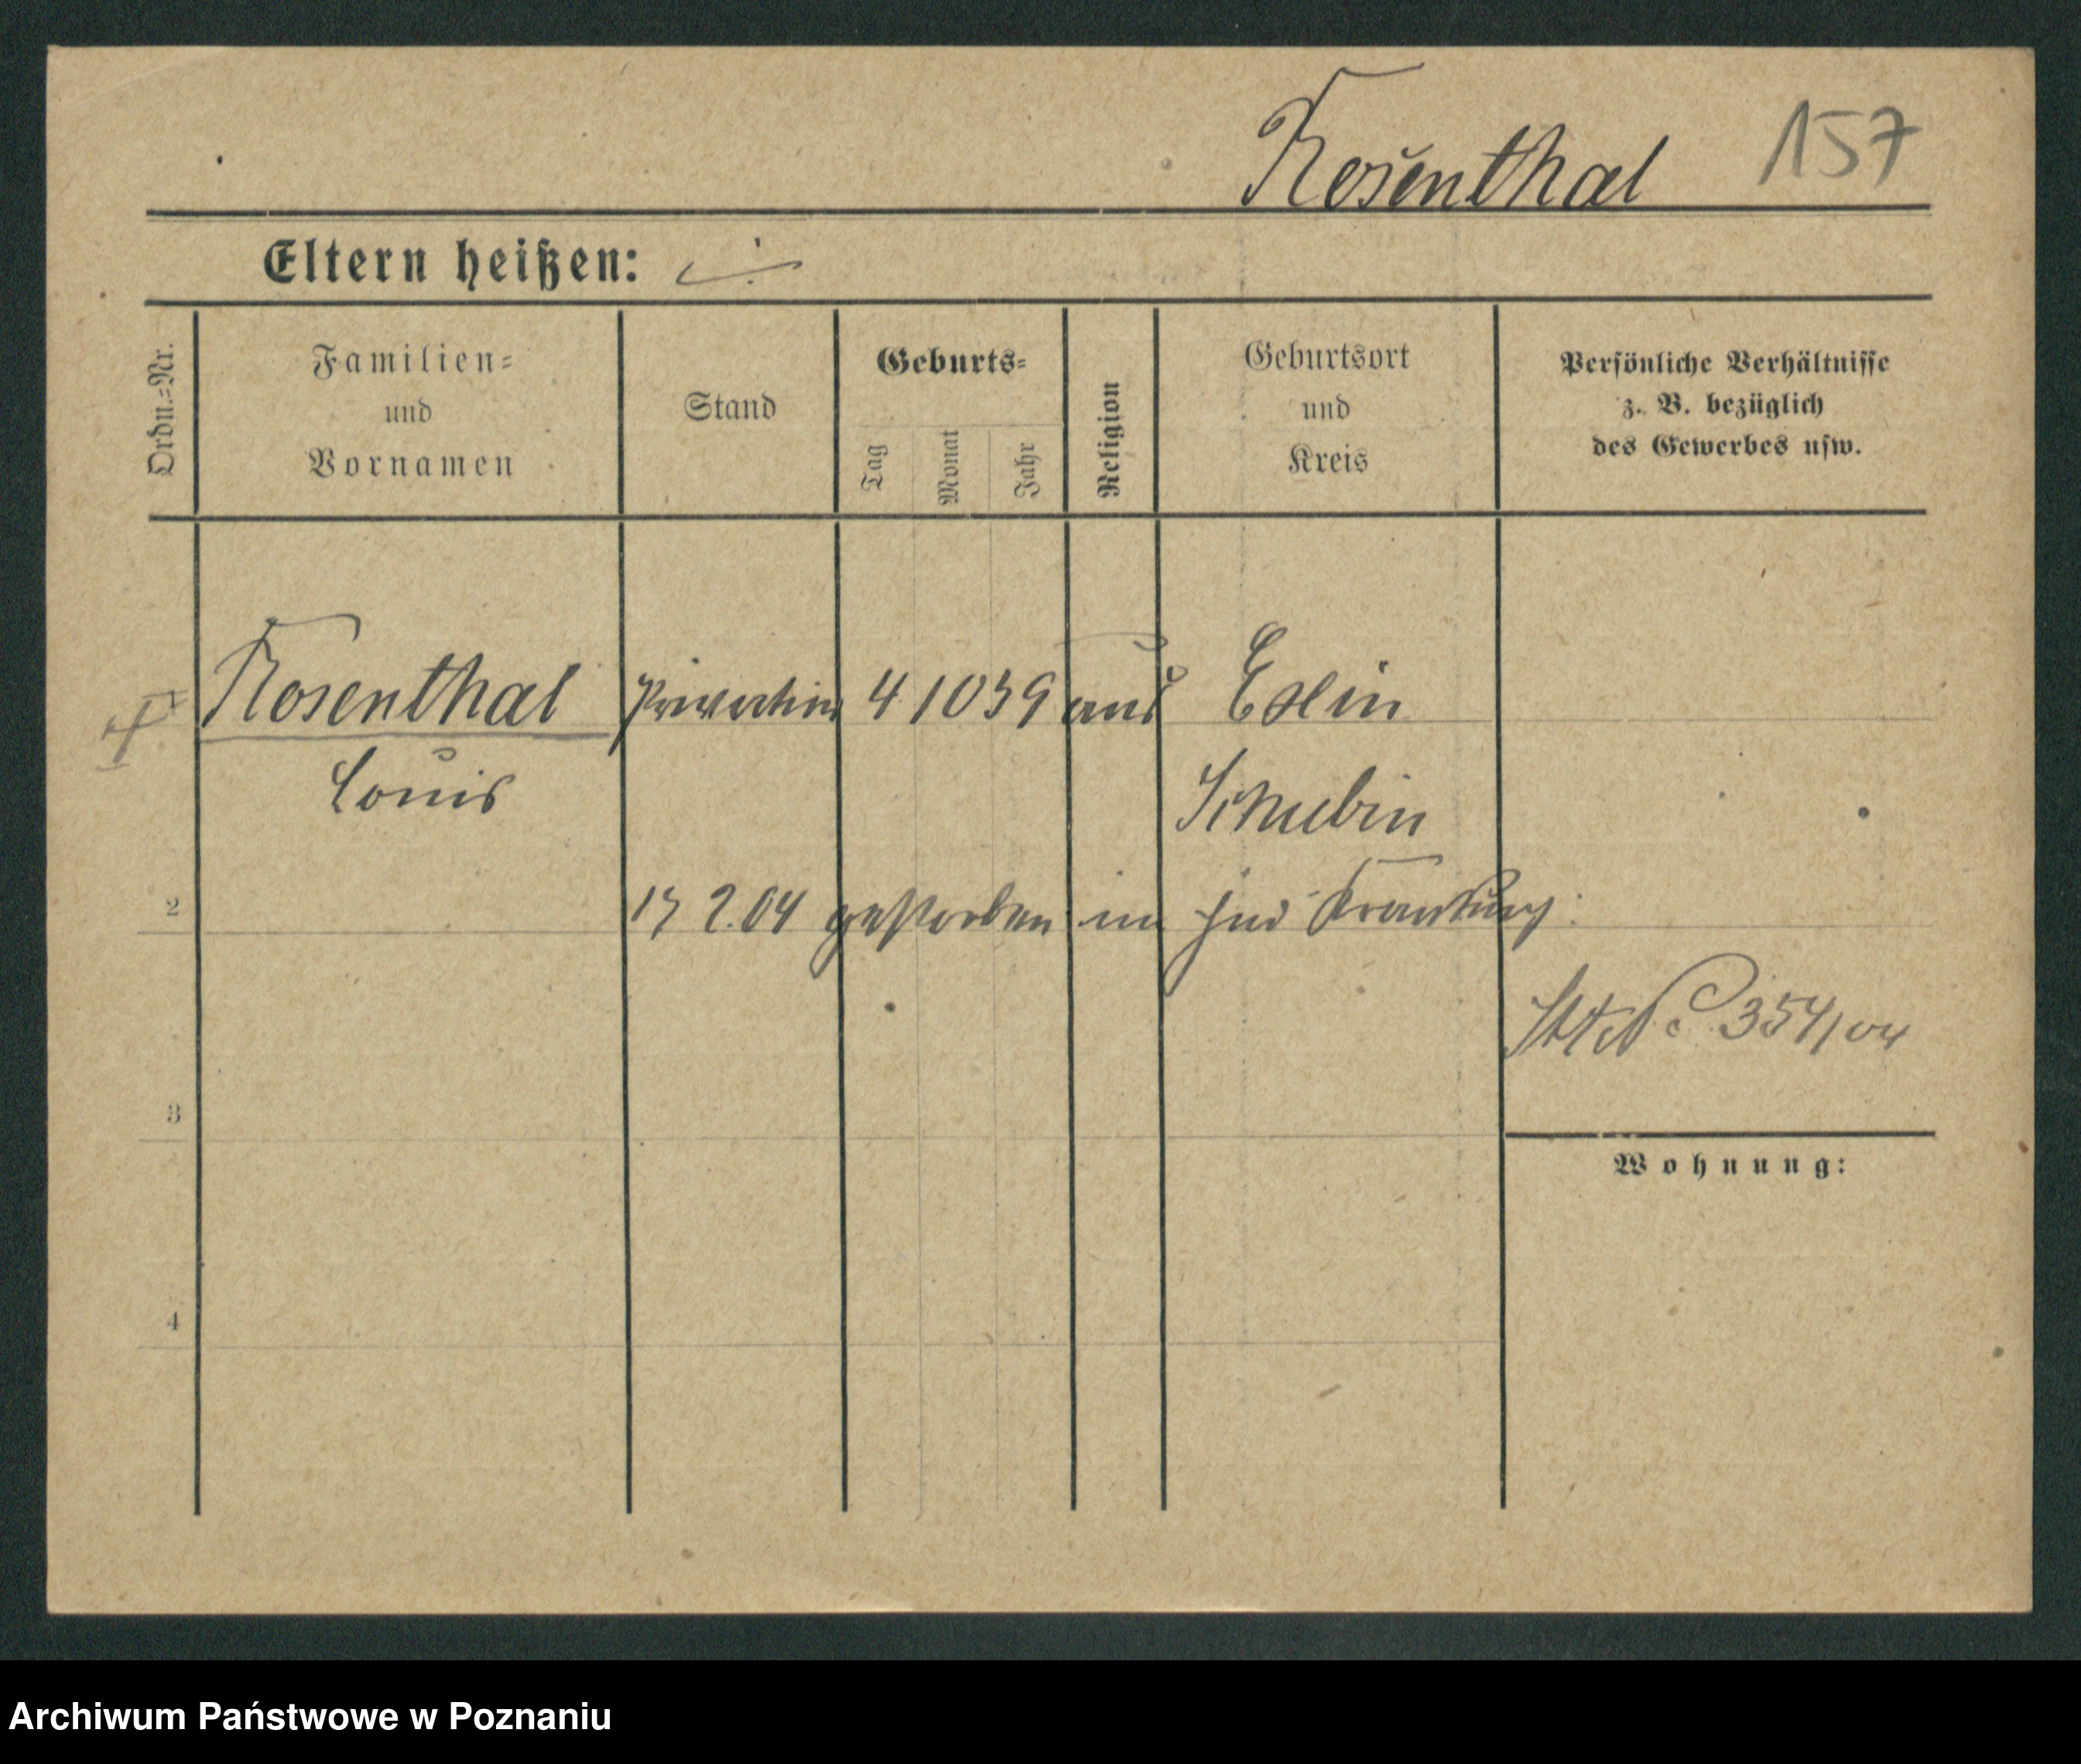 Rosenthal 157
Eltern heißen:
Ordn.=Nr.
Familien=
und
Vornamen
Stand
Geburts=
Tag
Monat
Jahr
Religion
Geburtsort
und
Kreis
Persönliche Verhältnisse
z. B. bezüglich
des Gewerbes usw.
Rosenthal 4 10 39 Exin
Louis Schubin
2 2.04 gestorben im jüd
354/04
3
Wohnung:
4
Archiwum Państwowe w Poznaniu